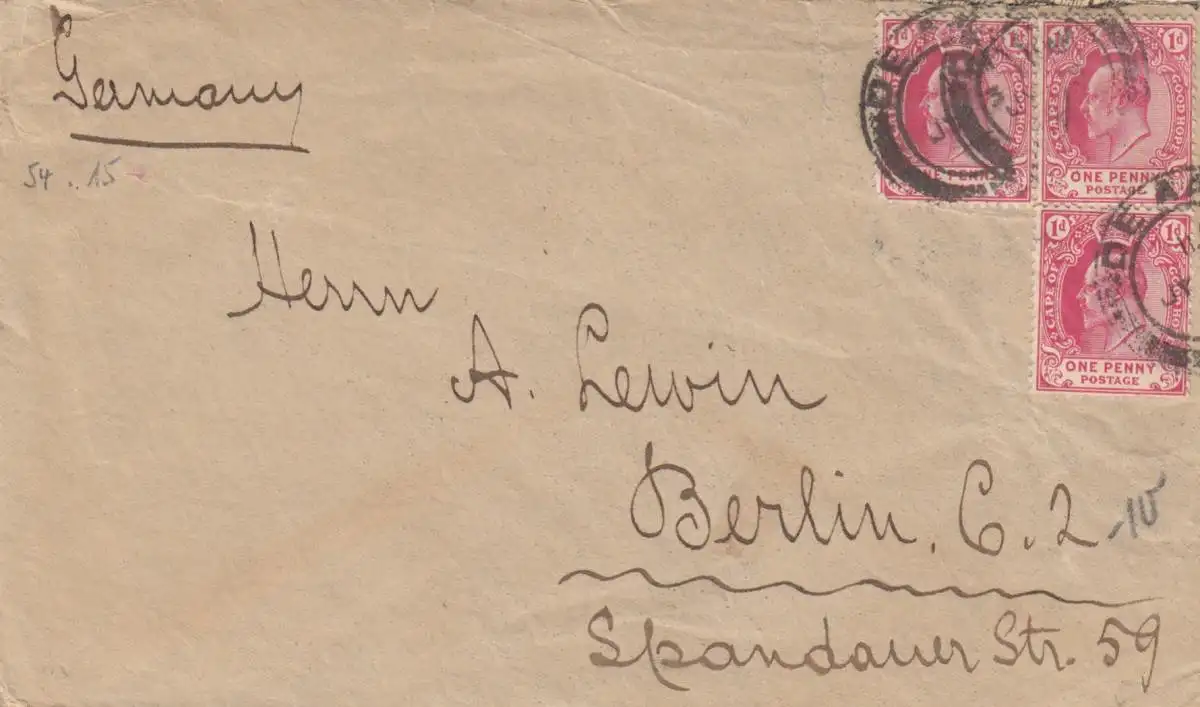 Germany
54 .. 15
Herrn
A. Lewin
Berlin. C. 2
-10
Spandauer Str. 59
1d 1d
CAPE OF GOOD HOPE
ONE PENNY
POSTAGE
1d 1d
CAPE OF GOOD HOPE
ONE PENNY
POSTAGE
1d 1d
CAPE OF GOOD HOPE
ONE PENNY
POSTAGE